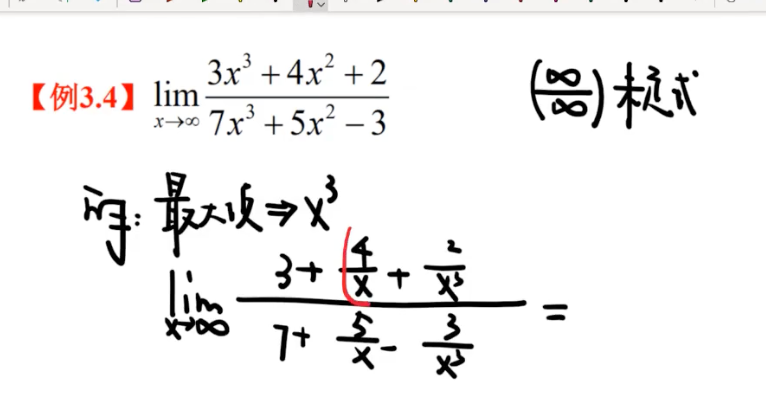 【例3.4】 lim x→∞ (3x³ + 4x² + 2)/(7x³ + 5x² − 3) (∞/∞) 未定式
解: 最大项 ⇒ x³
lim x→∞ (3 + 4/x + 2/x³)/(7 + 5/x − 3/x³) =